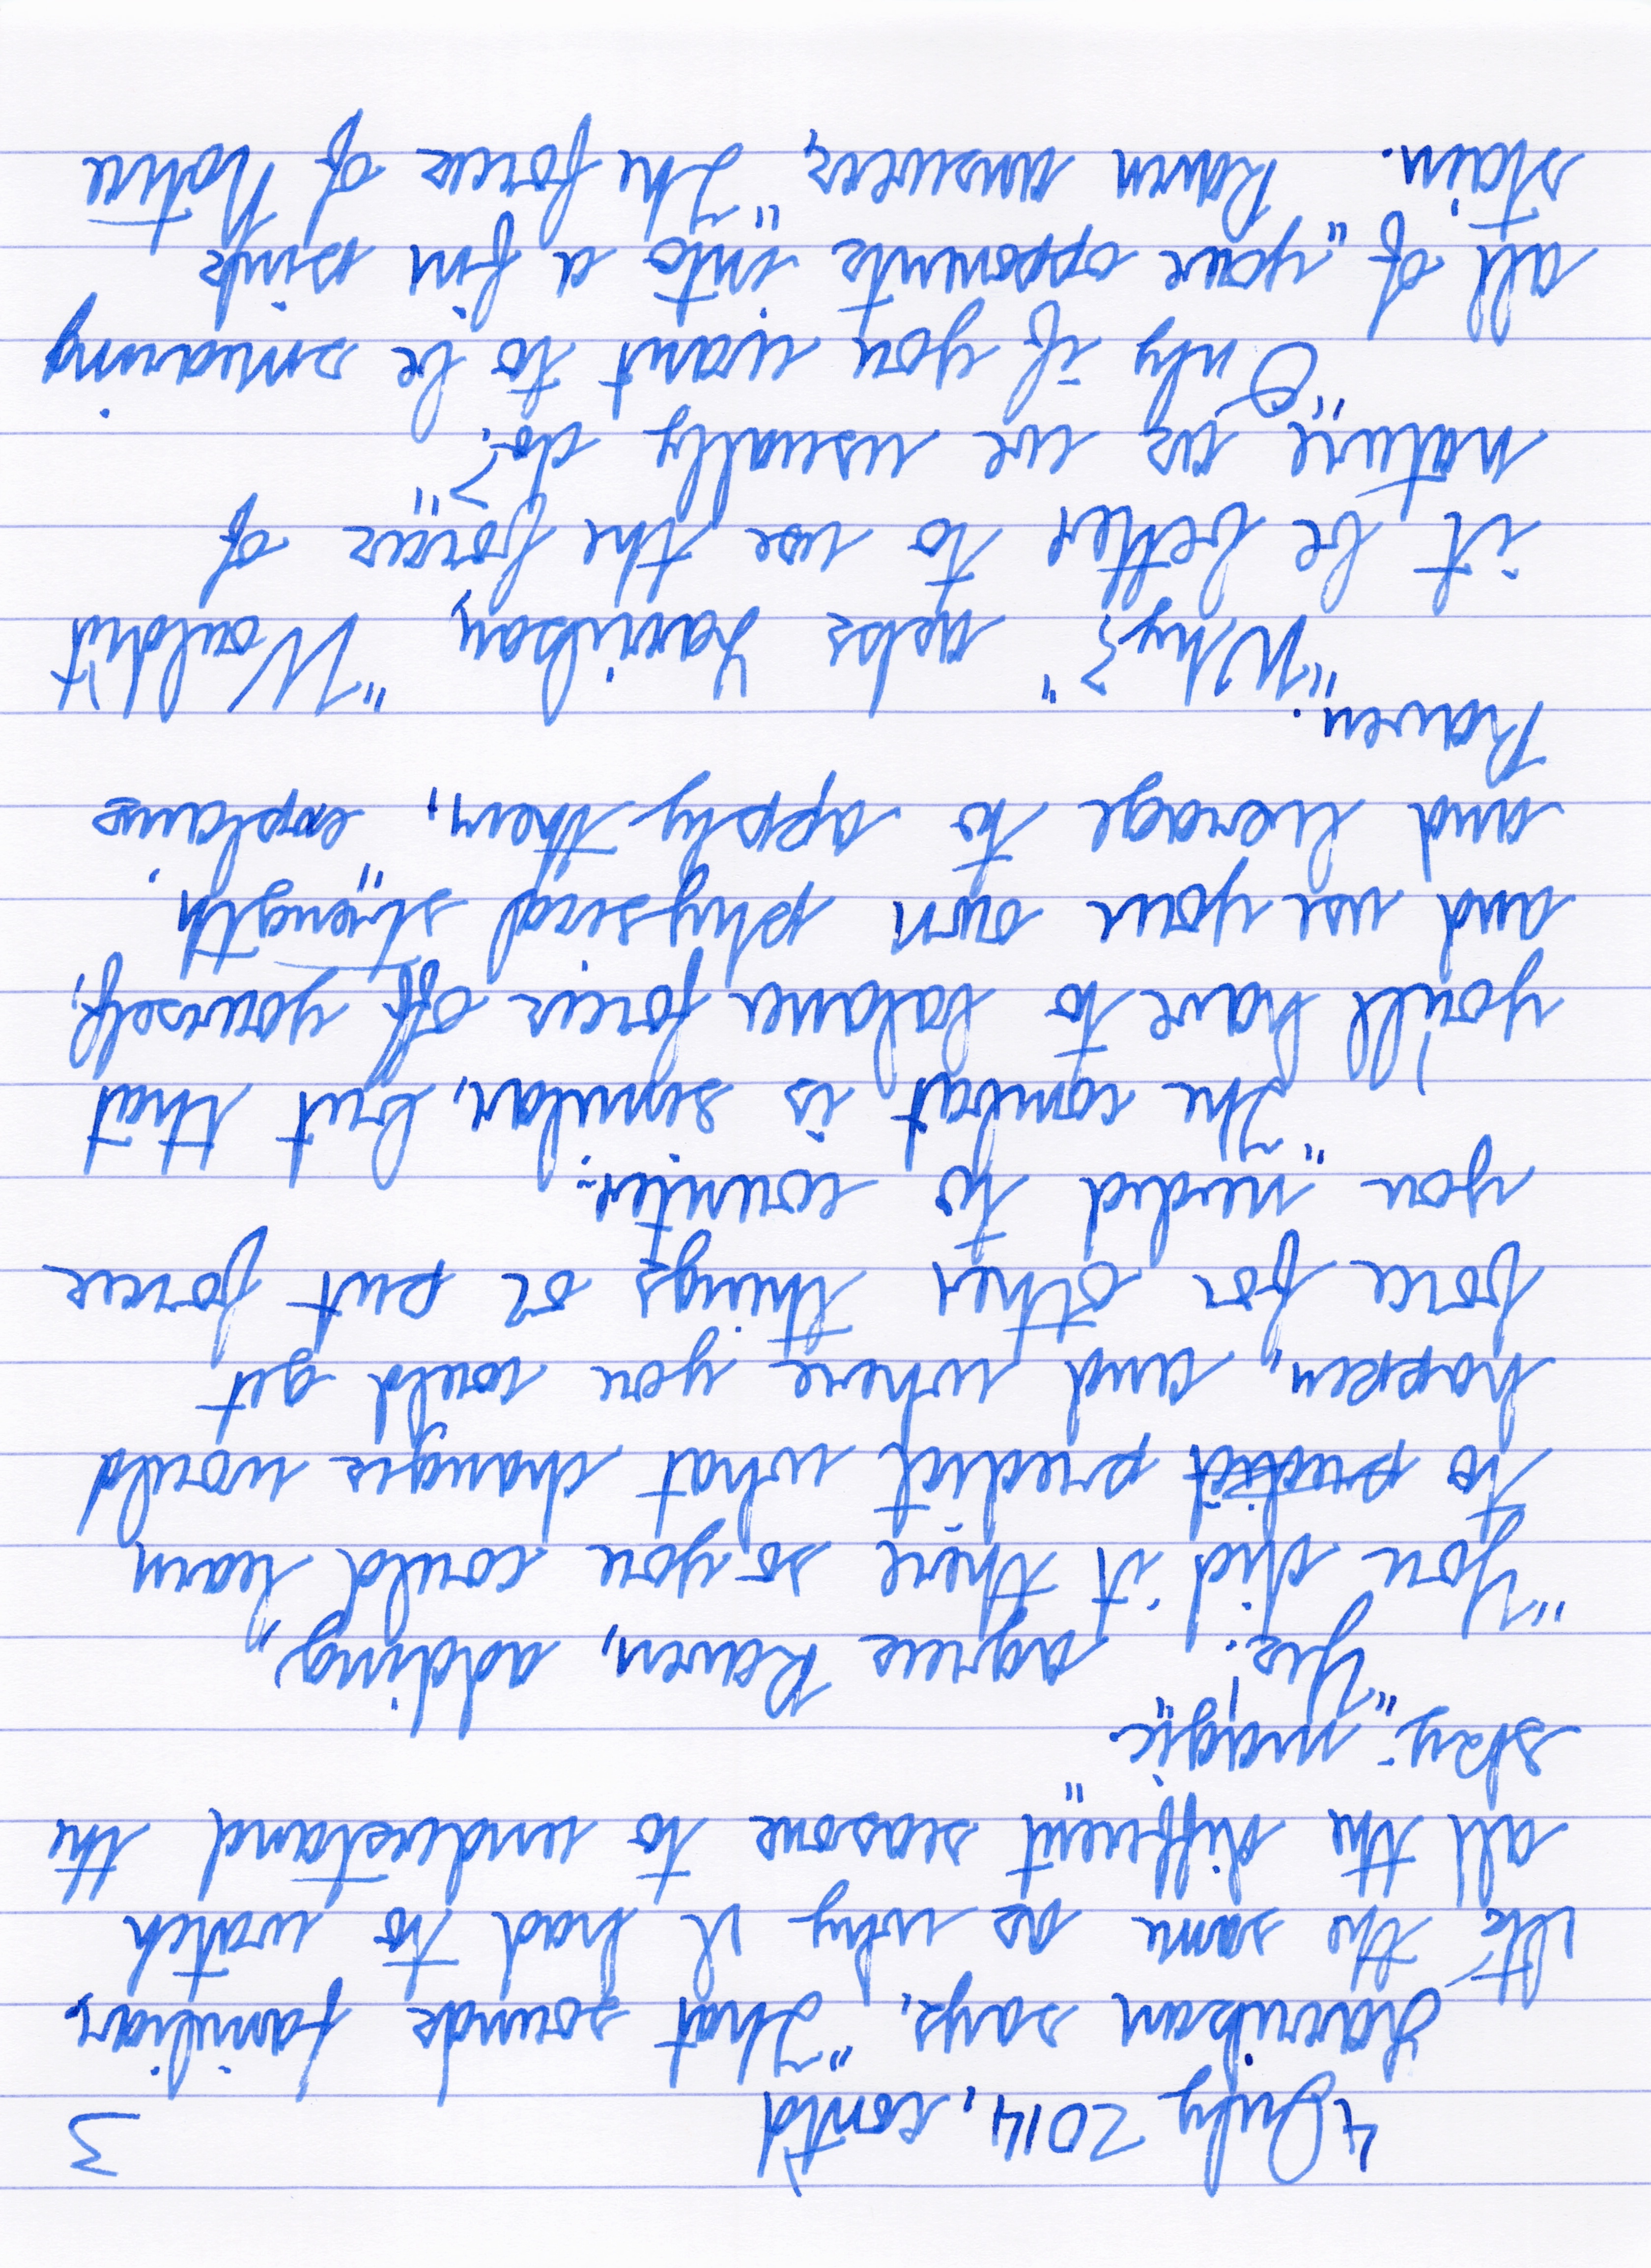 4 July 2014, cont'd 3
Larrikan says, "That sounds familiar.
It's the same as why I had to watch
all the different seasons to understand the
sky-magic."
"Yes." agrees Raven, adding,
"You did it there so you could learn
to predict predict what changes would
happen, and where you could get
force for other things or put force
you needed to counter.
"The combat is similar, but that
you'll have to balance forces off yourself,
and use your own physical strength,
and leverage to apply them," explains
Raven.
"Why?" asks Larrikan, "Wouldn't
it be better to use the forces of
nature as we usually do?"
"Only if you want to be smearing
all of your opponents into a fin sink
stain." Raven answers, "The forces of Nature